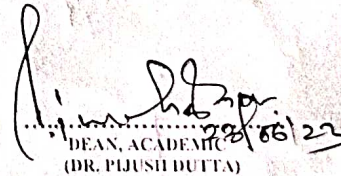 23/06/22
DEAN, ACADEMIC
(DR. PIJUSH DUTTA)